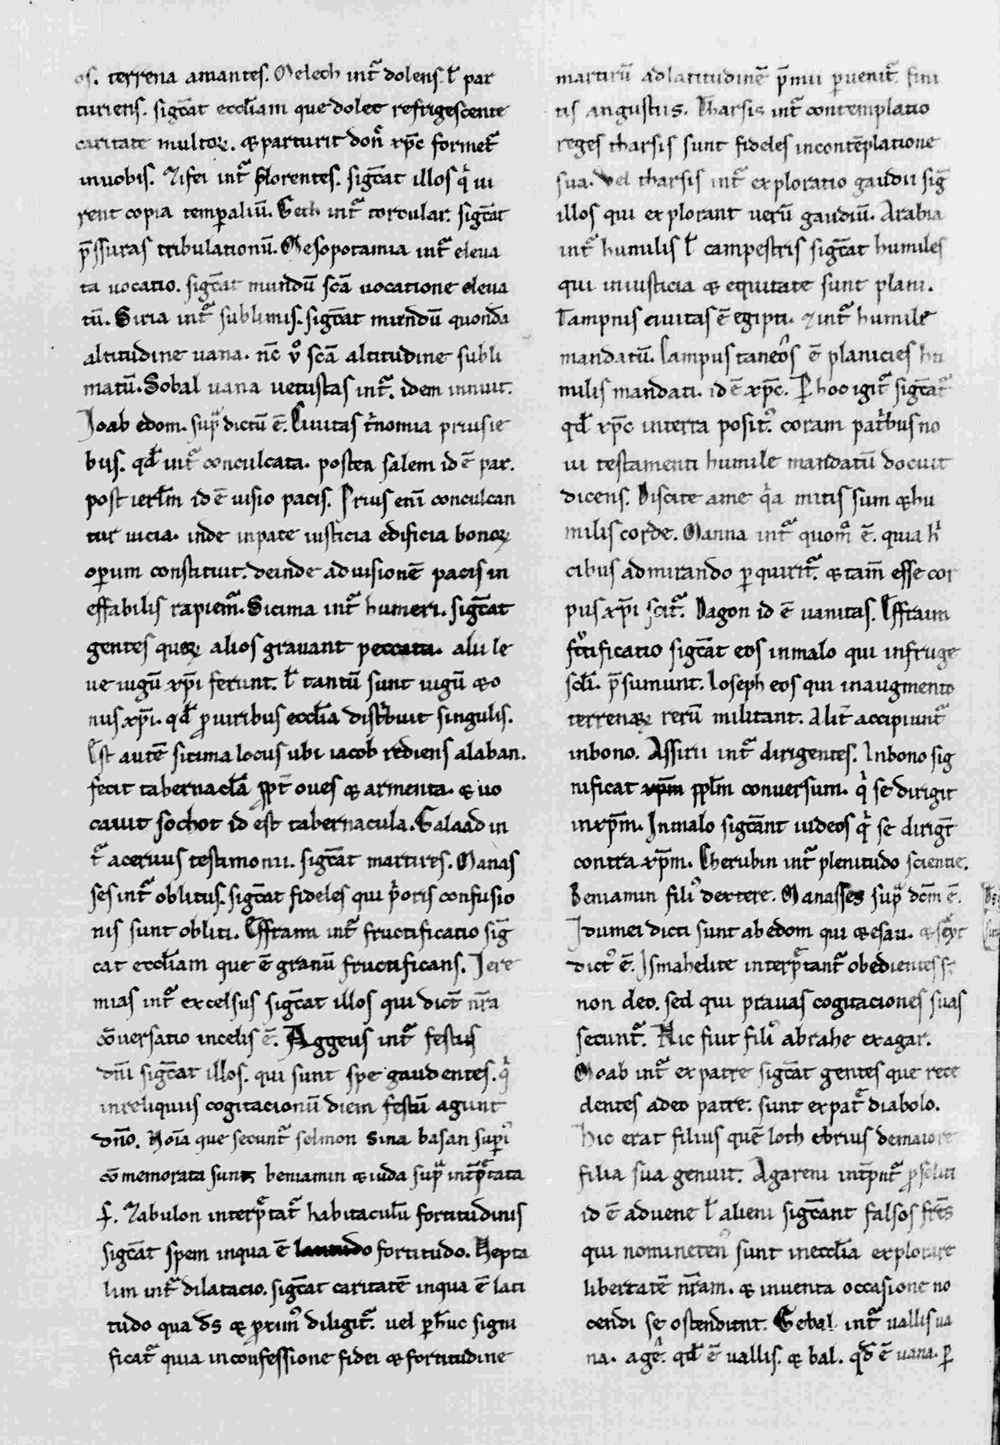 os. terrena amantes. Melech int̃ dolens. ł par
turiens. sigc̃at eccłiam que dolet refrigescente
caritate multoꝝ. & parturit don̊ xp̃c formet̃
in uobis. Nifei int̃ florentes. sigc̃at illos q̇ ui
rent copia temp̱aliũ. Geth int̃ torcular. sigc̃at
p̃ssuras tribulationũ. Mesopotamia int̃ eleua
ta uocatio. sigc̃at mundũ sc̃a uocatione eleua
tũ. Siria int̃ sublimis. sigc̃at mundũ quonda
altitudine uana. nc̃ ů sc̃a altitudine subli
matũ. Sobal uana uetustas int̃. idem innuit.
Ioab edom. sup̃ dictũ ẽ. Ciuitas t̃nomia prius ie
bus. qđ int̃ conculcata. postea salem id ẽ pax.
post ierłm id ẽ uisio pacis. Prius eni conculcan
tur uicia. inde in pace iusticia edificia bonoꝝ
oꝑum constituit. deinde ad uisionẽ pacis in
effabilis rapiem̃. Sicima int̃ humeri. sigc̃at
gentes quoꝝ alios grauant peccata. alii le
ue iugũ xp̃i ferunt. ł tantũ sunt iugũ & o
nus xp̃i. qđ ꝑ uiribus eccłia distribuit singulis.
Est autẽ sicima locus ubi iacob rediens a laban.
fecit tabernacła ꝓpt̃ oues & armenta. & uo
cauit sochot id est tabernacula. Galaad in
t̃ aceruus testimonii. sigc̃at martires. Manas
ses int̃ oblitus. sigc̃at fideles qui p̃oris confusio
nis sunt obliti. Effraim int̃ fructificatio sig̃
cat eccłiam que ẽ granũ fructificans. Iere
mias int̃ excelsus sigc̃at illos qui dict̃ nr̃a
cõuersatio in celis ẽ. Aggeus int̃ festus
dñi sigc̃at illos. qui sunt spe gaudentes. q̇
in reliquiis cogitacionũ diem festũ agunt
dño. Nõia que secunt̃ selmon sina basan sup̱i
cõmemorata sunt beniamin & iuda sup̃ int̃p̃tata
s̃. Zabulon interp̃tat̃ habitaculũ fortitudinis
sigc̃at spem in qua ẽ fortitudo. Nepta
lim int̃ dilatacio. sigc̃at caritatẽ in qua ẽ lati
tudo qua ds̃ & ꝓxim᾽ diligit̃. uel ꝑ huc signi
ficat̃ quia in confessione fidei & fortitudine
martirũ ad latitudinẽ p̃mii ꝑuenit̃ fini
tis angustiis. Tharsis int̃ contemplatio
reges tharsis sunt fideles in contẽplatione
sua. Vel tharsis int̃ exploratio gaudii sig̃
illos qui explorant uerũ gaudiũ. Arabia
int̃ humilis ł campestris sigc̃at humiles
qui in iusticia & equitate sunt plani.
Tampnis ciuitas ẽ egipti. & int̃ humile
mandatũ. Campus taneos ẽ planicies hu
milis mandati. id ẽ xp̃c. P hoc igit̃ sigc̃at̃
qđ xp̃c in terra posit᾽. coram patribus no
ui testamenti humile mandatũ docuit
dicens. Discite a me q̃a mitis sum & hu
milis corde. Manna int̃ quom̃ ẽ. quia h̃
cibus admirando ꝑquirit̃. & tam̃ esse cor
pus xp̃i scit̃. Dagon id ẽ uanitas. Effraim
fc̃tificatio sigc̃at eos in malo qui in fruge
scłi. p̃sumunt. Ioseph eos qui in augmento
terrenaꝝ rerũ militant. Alit̃ accipiunt̃
in bono. Assirii int̃ dirigentes. In bono sig
nificat xp̃m ppłm conuersum. q̇ se dirigit
in xp̃m. In malo sigc̃ant iudeos q̇ se dirigt̃
contra xp̃m. Cherubin int̃ plenitudo scientie.
Beniamin fili᾽ dextere. Manasses sup̃ dcm̃ ẽ.
Idumei dicti sunt ab edom qui & esau.
dict᾽ ẽ. Ismahelite interp̃tant̃ obedientes
non deo. sed qui prauas cogitaciones suas
secunt̃. Hic fuit fili᾽ abrahe ex agar.
Moab int̃ ex patre sigc̃at gentes que rece
dentes a deo patre. sunt ex pat̃ diabolo.
Hic erat filius quẽ loth ebrius de maiore
filia sua genuit. Agareni int̃pnt̃ ꝓseliti
id ẽ aduene ł alieni sigc̃ant falsos fr̃es
qui nomineten᾽ sunt in eccłia explorare
libertatẽ nr̃am. & inuenta occasione no
cendi se ostendunt. Gebal int̃ uallis ua
na. a ge. qđ ẽ uallis. & bal. qđ ẽ uana. ꝑ